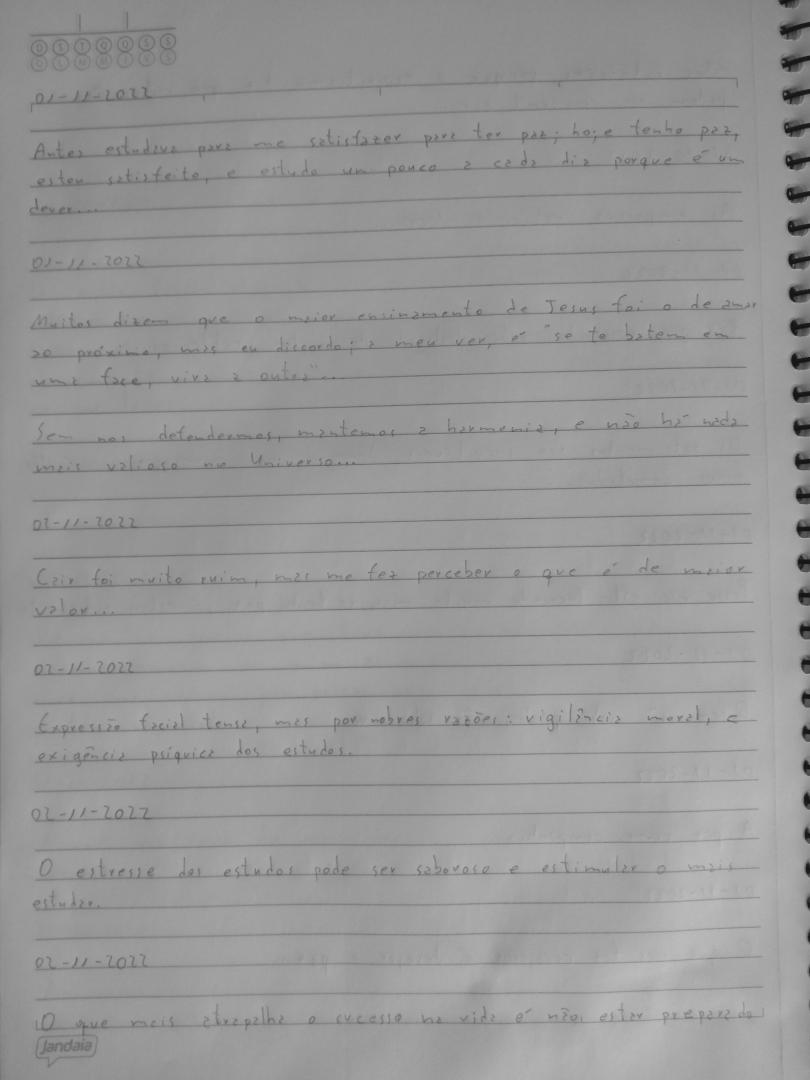 D S T Q Q S S
D L M M J V S
01-11-2022
Antes estudava para me satisfazer para ter paz; hoje tenho paz,
estou satisfeito, e estudo um pouco a cada dia porque é um
dever...
01-11-2022
Muitos dizem que o maior ensinamento de Jesus foi o de amar
ao próximo, mas eu discordo; a meu ver, é "se te batem em
uma face, vira a outra"...
Sem nos defendermos, mantemos a harmonia, e não há nada
mais valioso no Universo...
02-11-2022
Cair foi muito ruim, mas me fez perceber o que é de maior
valor...
02-11-2022
Expressão facial tensa, mas por nobres razões: vigilância moral, e
exigência psíquica dos estudos.
02-11-2022
O estresse dos estudos pode ser saboroso e estimular o mais
estudar.
02-11-2022
O que mais atrapalha o sucesso na vida é não estar preparado
Jandaia